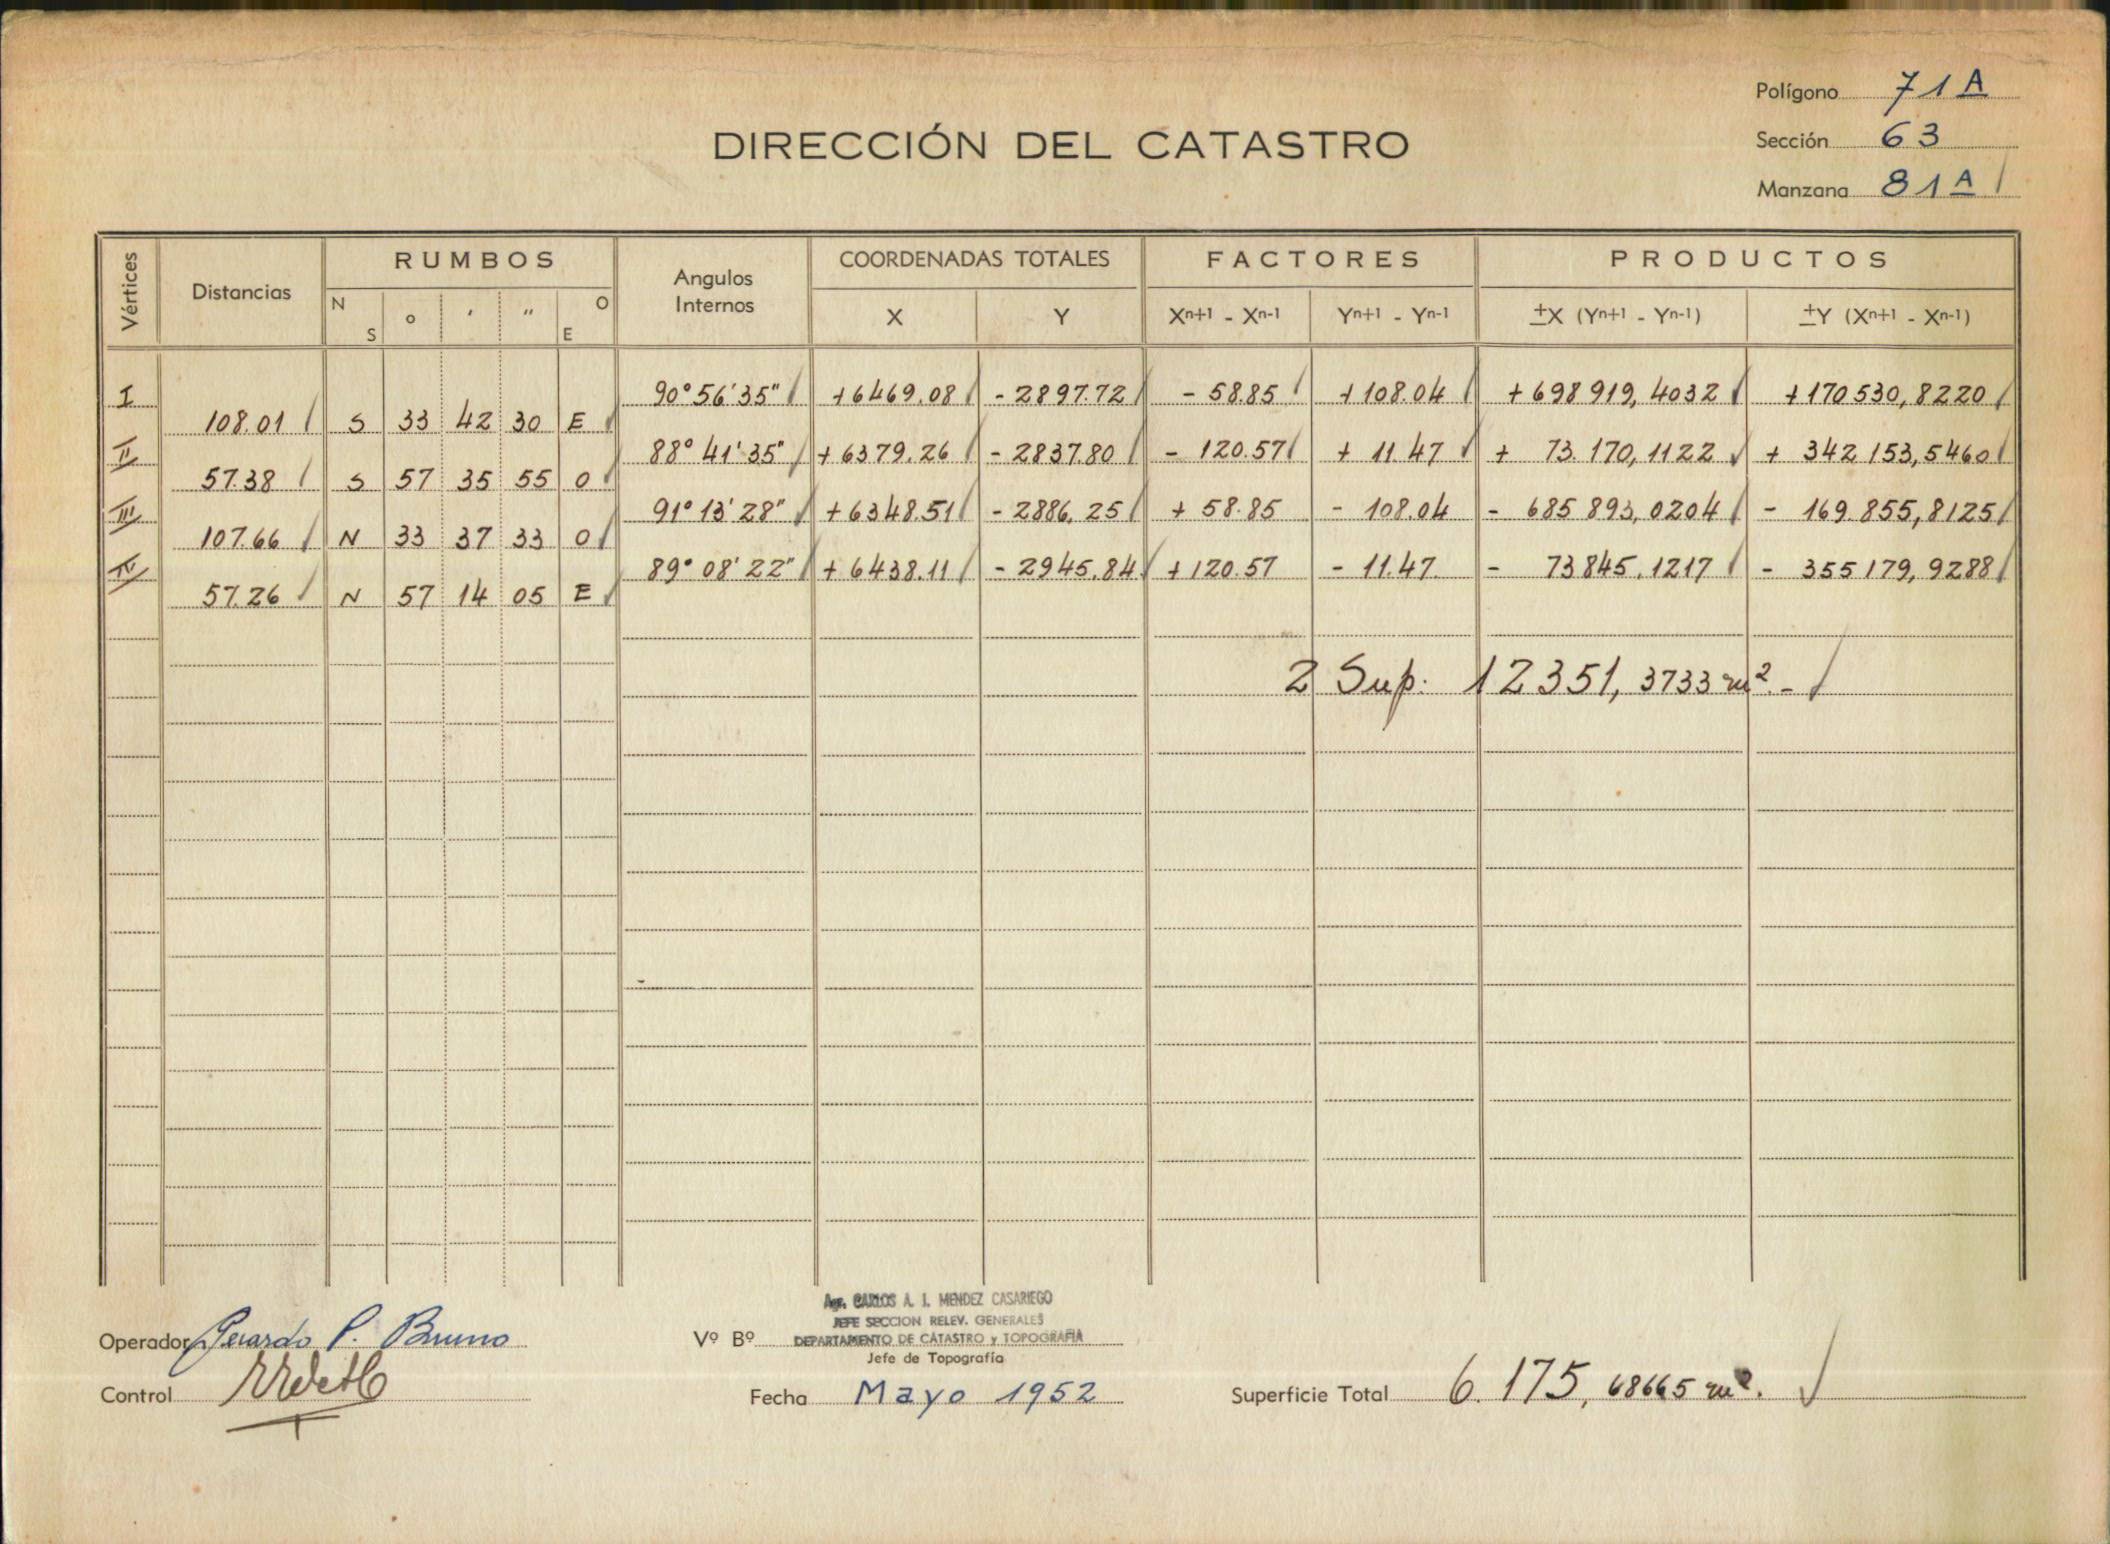 Polígono 71A
DIRECCIÓN DEL CATASTRO
Sección 63
Manzana 81A
Vértices Distancias RUMBOS Angulos Internos COORDENADAS TOTALES FACTORES PRODUCTOS
N S o ' " O E X Y Xn+1 - Xn-1 Yn+1 - Yn-1 ±X (Yn+1 - Yn-1) ±Y (Xn+1 - Xn-1)
I 90° 56' 35" +6469.08 - 2897.72 - 58.85 +108.04 +698 919,4032 +170 530,8220
108.01 S 33 42 30 E
II 88° 41' 35" +6379.26 - 2837.80 - 120.57 + 11.47 + 73.170,1122 + 342 153,5460
57.38 S 57 35 55 O
III 91° 13' 28" +6348.51 - 2886.25 + 58.85 - 108.04 - 685 893,0204 - 169.855,8125
107.66 N 33 37 33 O
IV 89° 08' 22" + 6438.11 - 2945.84 +120.57 - 11.47. - 73845.1217 - 355179,9288
57.26 N 57 14 05 E
2 Sup: 12351,3733 m². -
Agr. CARLOS A. I. MENDEZ CASARIEGO
JEFE SECCION RELEV. GENERALES
Operador Gerardo P. Bruno Vº Bº DEPARTAMENTO DE CATASTRO y TOPOGRAFIA
Jefe de Topografía
Control Fecha Mayo 1952 Superficie Total 6.175,68665 m².